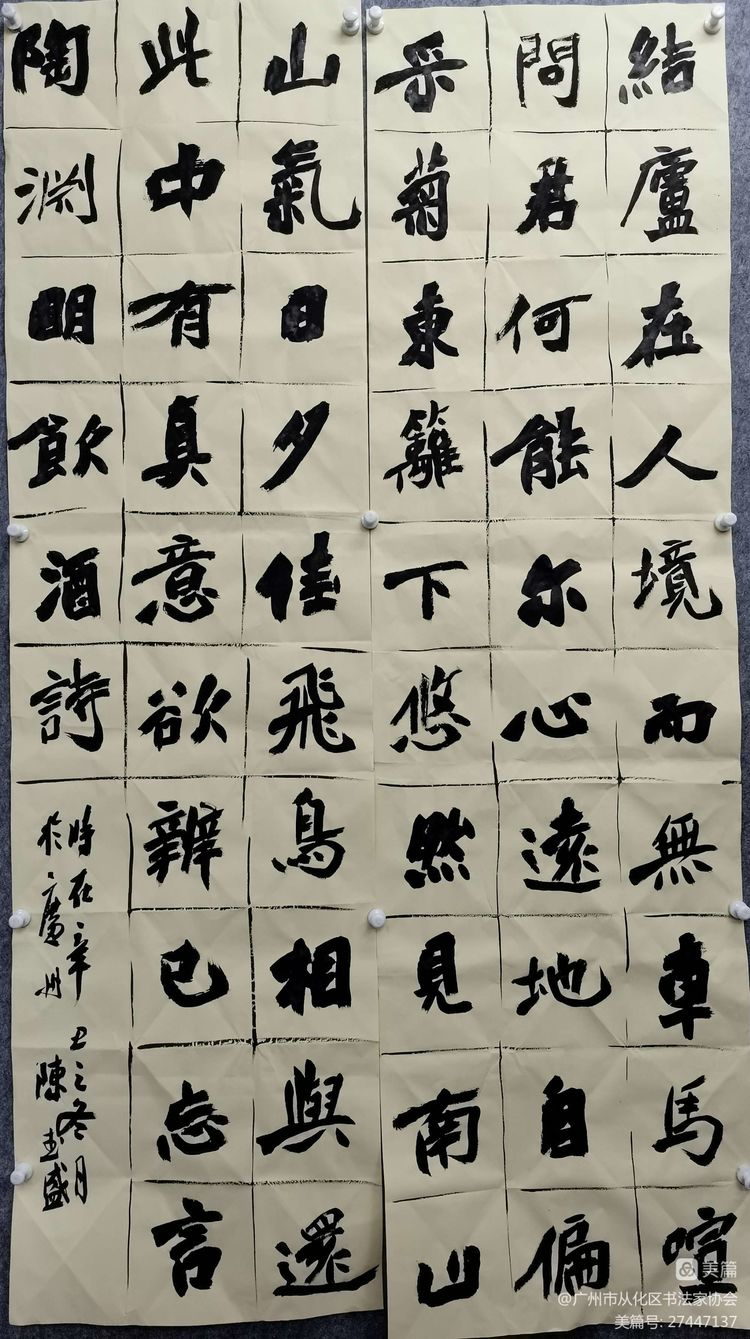 結廬在人境而無車馬喧
問君何能尔心遠地自偏
采菊東籬下悠然見南山
山氣日夕佳飛鳥相與還
此中有真意欲辨已忘言
陶淵明飲酒詩
時在辛丑之冬月
於廣州陳
美篇
@广州市从化区书法家协会
美篇号: 27447137